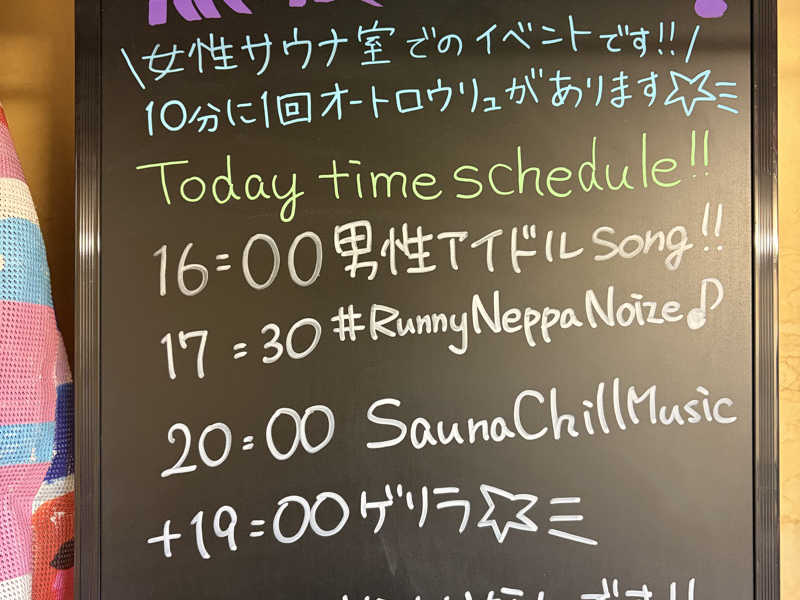 \女性サウナ室でのイベントです!!/
10分に1回オートロウリュがあります☆彡
Today time schedule!!
16:00 男性アイドルsong!!
17:30 #RunnyNeppaNoize♪
20:00 SaunaChillMusic
+19:00 ゲリラ☆彡